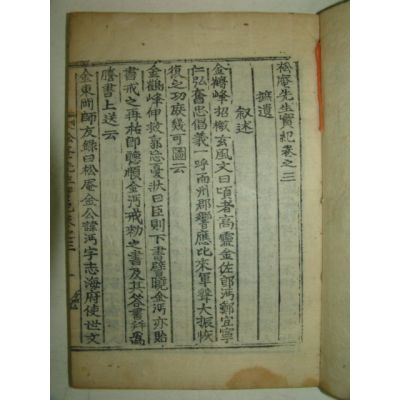 松庵先生實紀卷之三
摭遺
叙述
金鶴峰招檄玄風文曰頃者高靈金佐郎沔鄭宜寧
仁弘奮忠倡義一呼而州郡響應比來軍聲大振恢
復之功庶幾可圖云
金鶴峰伸救郭忘憂狀曰臣則下書譬曉金沔亦貽
書戒之再祐卽聽順金沔戒勅之書及其答書幷爲
謄書上送云
金東岡師友錄曰松庵金公諱沔字志海府使世文